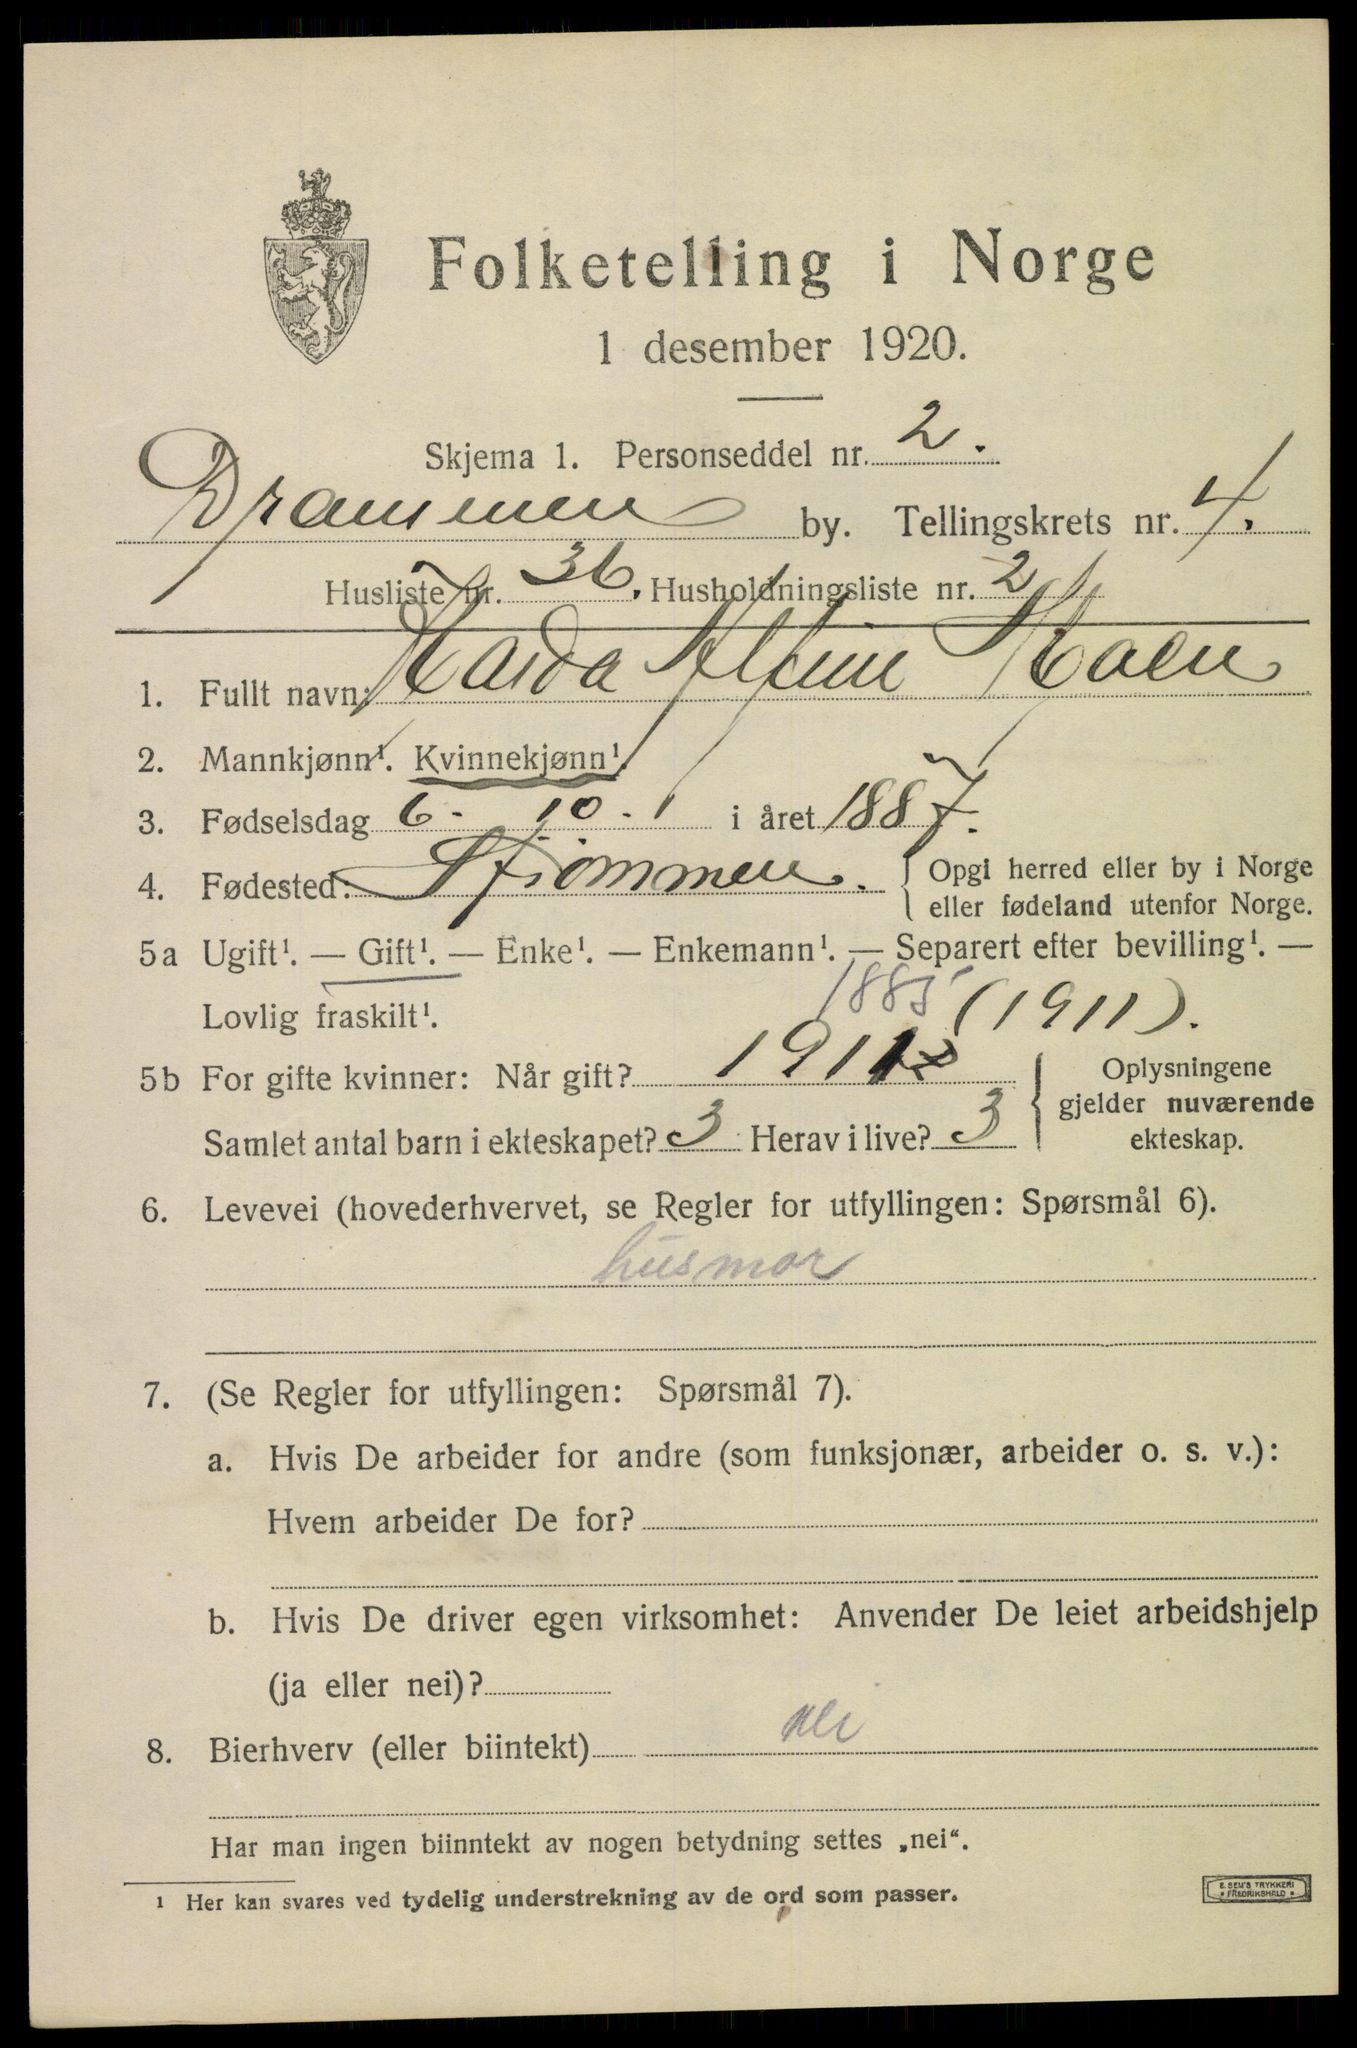 Folketelling i Norge
1 desember 1920.
Skjema 1. Personseddel nr. 2.
Drammen by. Tellingskrets nr. 4.
Husliste nr. 36. Husholdningsliste nr. 2
1. Fullt navn:
2. Mannkjønn¹. Kvinnekjønn¹.
3. Fødselsdag 6 - 10 - i året 1887.
4. Fødested: Strømmen. { Opgi herred eller by i Norge
eller fødeland utenfor Norge.
5a Ugift¹. — Gift¹. — Enke¹. — Enkemann¹. — Separert efter bevilling¹. —
Lovlig fraskilt¹. 1885 (1911).
5b For gifte kvinner: Når gift? 1911 { Oplysningene
gjelder nuværende
Samlet antal barn i ekteskapet? 3 Herav i live? 3 ekteskap.
6. Levevei (hovederhvervet, se Regler for utfyllingen: Spørsmål 6).
husmor
7. (Se Regler for utfyllingen: Spørsmål 7).
a. Hvis De arbeider for andre (som funksjonær, arbeider o. s. v.):
Hvem arbeider De for?
b. Hvis De driver egen virksomhet: Anvender De leiet arbeidshjelp
(ja eller nei)?
8. Bierhverv (eller biintekt) nei
Har man ingen biinntekt av nogen betydning settes „nei“.
¹ Her kan svares ved tydelig understrekning av de ord som passer.
E. SEM'S TRYKKERI
FREDRIKSHALD